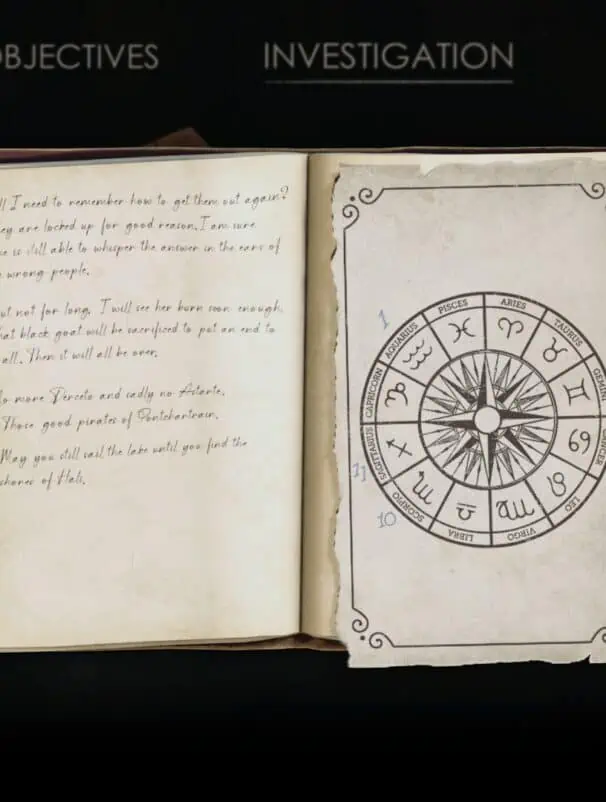 BJECTIVES
INVESTIGATION
ll I need to remember how to get them out again?
ey are locked up for good reason. I am sure
e is still able to whisper the answer in the ears of
wrong people.
ut not for long. I will see her burn soon enough.
hat black goat will be sacrificed to put an end to
all. Then it will all be over.
o more Derceto and sadly no Astarte.
Those good pirates of Pontchartrain.
May you still sail the lake until you find the
shores of Hali.
1
11
10
PISCES
ARIES
TAURUS
GEMINI
CANCER
LEO
VIRGO
LIBRA
SCORPIO
SAGITTARIUS
CAPRICORN
AQUARIUS